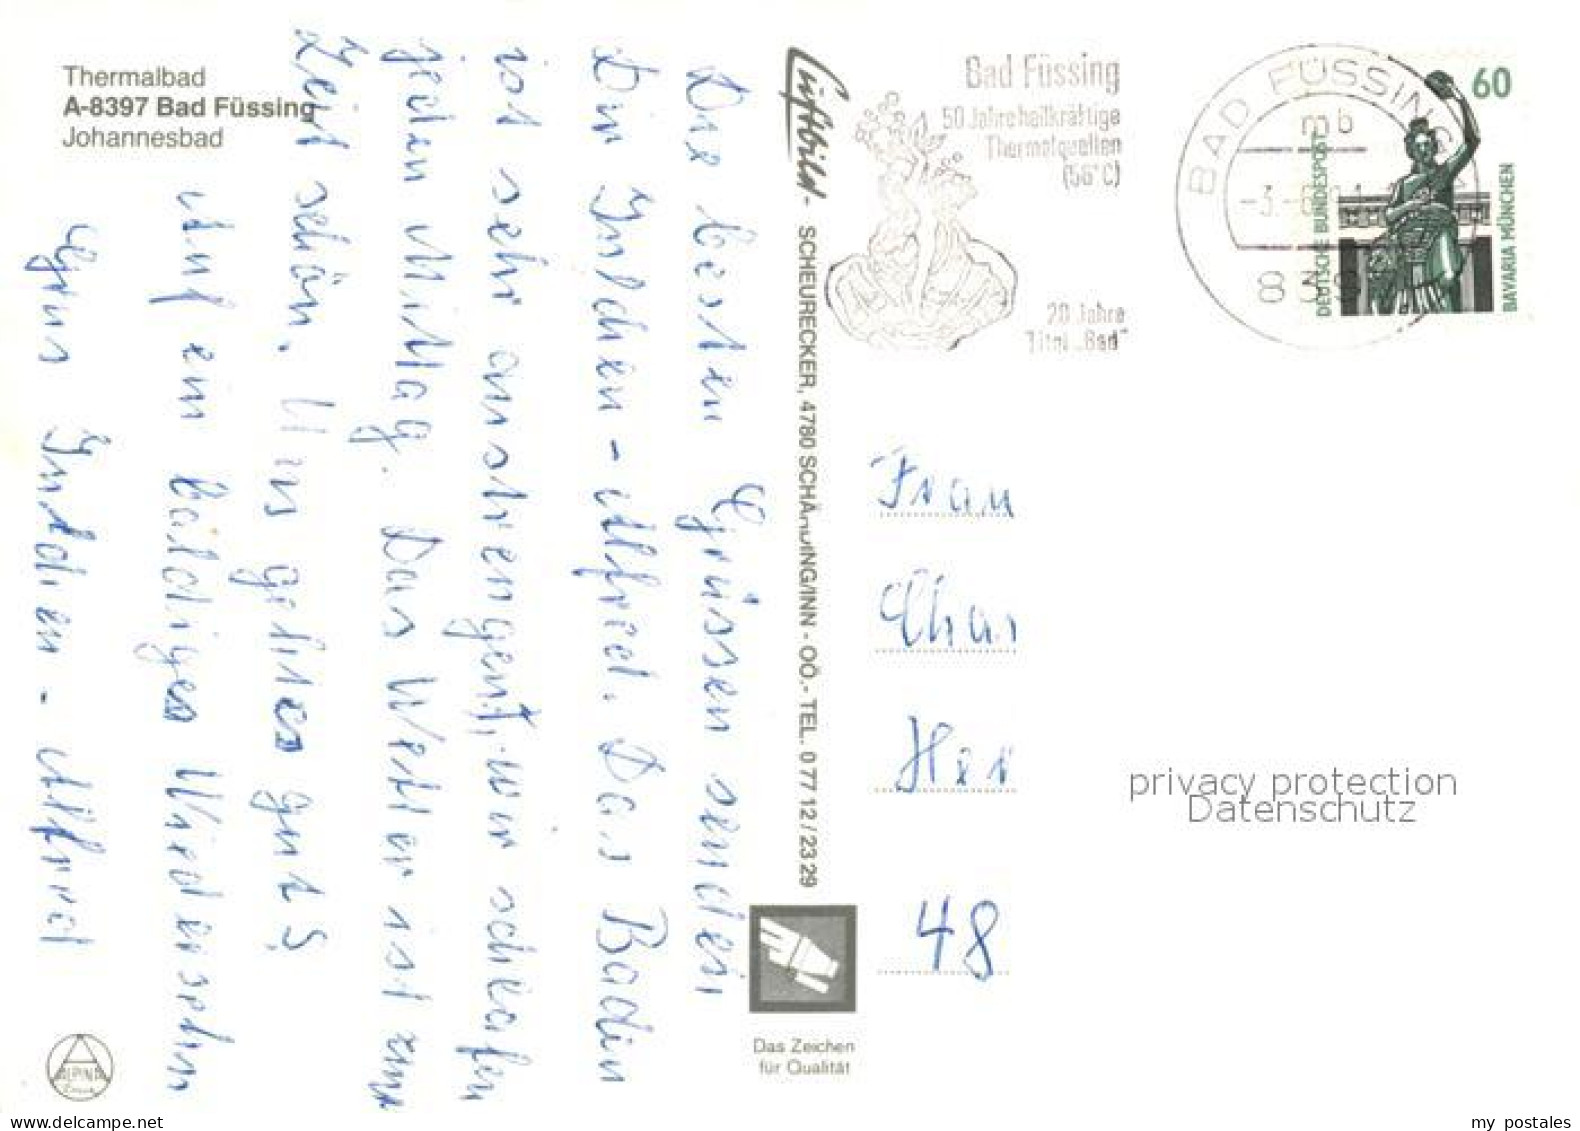 Thermalbad
A-8397 Bad Füssing
Johannesbad
Die besten Grüssen senden
Dir Inlchen - Alfred. Das Baden
ist sehr anstrengent, wir schlafen
jeden Mittag. Das Wetter ist zur
Zeit schön. Uns gehtes gut
Auf ein baldiges Wiedersehn
Grus Inlchen - Alfred
Luftbild - SCHEURECKER, 4780 SCHÄRDING/INN - OÖ.- TEL. 0 77 12 / 23 29
Das Zeichen
für Qualität
ALPINA
Bad Füssing
50 Jahre heilkräftige
Thermalquellen
(56°C)
20 Jahre
Titel „Bad"
BAD FÜSSING
mb
60
DEUTSCHE BUNDESPOST
BAVARIA MÜNCHEN
Frau
48
privacy protection
Datenschutz
my postales